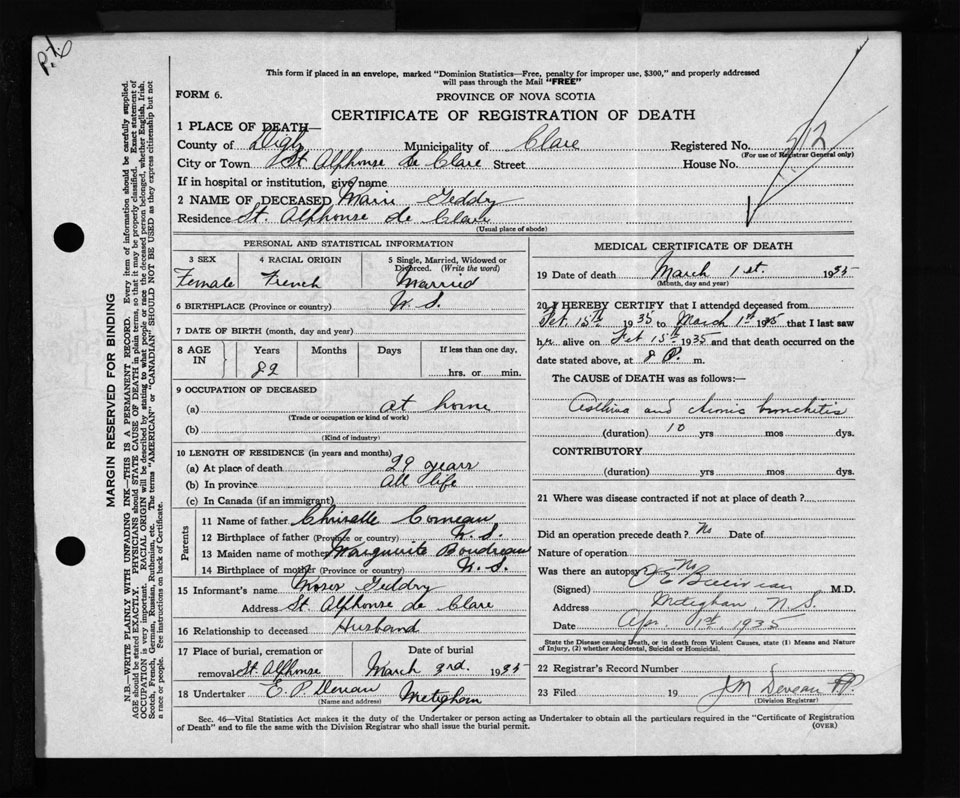 P.6
This form if placed in an envelope, marked "Dominion Statistics—Free, penalty for improper use, $300," and properly addressed
will pass through the Mail "FREE"
FORM 6.
PROVINCE OF NOVA SCOTIA
CERTIFICATE OF REGISTRATION OF DEATH
1 PLACE OF DEATH—
County of Digby Municipality of Clare Registered No. 512
(For use of Registrar General only)
City or Town St Alphonse de Clare Street House No.
If in hospital or institution, give name
2 NAME OF DECEASED Marie Geddry
Residence St. Alphonse de Clare
(Usual place of abode)
MARGIN RESERVED FOR BINDING
N.B.—WRITE PLAINLY WITH UNFADING INK—THIS IS A PERMANENT RECORD. Every item of information should be carefully supplied.
AGE should be stated EXACTLY. PHYSICIANS should STATE CAUSE OF DEATH in plain terms, so that it may be properly classified. Exact statement of
OCCUPATION is very important. RACIAL ORIGIN will be described by stating to what people or race the deceased person belonged, whether English, Irish,
Scotch, French, German, Russian, Ruthenian, etc. The terms "AMERICAN" or "CANADIAN" SHOULD NOT BE USED as they express citizenship but not
a race or people. See instructions on back of Certificate.
PERSONAL AND STATISTICAL INFORMATION
3 SEX 4 RACIAL ORIGIN 5 Single, Married, Widowed or
Divorced. (Write the word)
Female French Married
6 BIRTHPLACE (Province or country) N. S.
7 DATE OF BIRTH (month, day and year)
8 AGE IN Years Months Days If less than one day,
82 hrs. or min.
9 OCCUPATION OF DECEASED
(a) at home
(Trade or occupation or kind of work)
(b)
(Kind of industry)
10 LENGTH OF RESIDENCE (in years and months)
(a) At place of death 29 years
(b) In province All life
(c) In Canada (if an immigrant)
Parents
11 Name of father Comeau
12 Birthplace of father (Province or country) N. S.
13 Maiden name of mother Marguerite Boudreau
14 Birthplace of mother (Province or country) N. S.
15 Informant's name Geddry
Address St. Alphonse de Clare
16 Relationship to deceased Husband
17 Place of burial, cremation or Date of burial
removal St. Alphonse March 3rd. 1935
18 Undertaker E. P. Meteghan
(Name and address)
MEDICAL CERTIFICATE OF DEATH
19 Date of death March 1st. 1935
(Month, day and year)
20 I HEREBY CERTIFY that I attended deceased from
Feb. 15th 1935 to March 1st 1935 that I last saw
her alive on Feb 15th 1935 and that death occurred on the
date stated above, at 8 P. m.
The CAUSE OF DEATH was as follows:—
Asthma and bronchitis
(duration) 10 yrs mos dys.
CONTRIBUTORY
(duration) yrs mos dys.
21 Where was disease contracted if not at place of death?
Did an operation precede death? No Date of
Nature of operation
Was there an autopsy No
(Signed) M.D.
Address Meteghan N. S.
Date Apr. 1st. 1935
State the Disease causing Death, or in death from Violent Causes, state (1) Means and Nature
of Injury, (2) whether Accidental, Suicidal or Homicidal.
22 Registrar's Record Number
23 Filed 19 J M Deveau
(Division Registrar)
Sec. 46—Vital Statistics Act makes it the duty of the Undertaker or person acting as Undertaker to obtain all the particulars required in the "Certificate of Registration
of Death" and to file the same with the Division Registrar who shall issue the burial permit. (OVER)